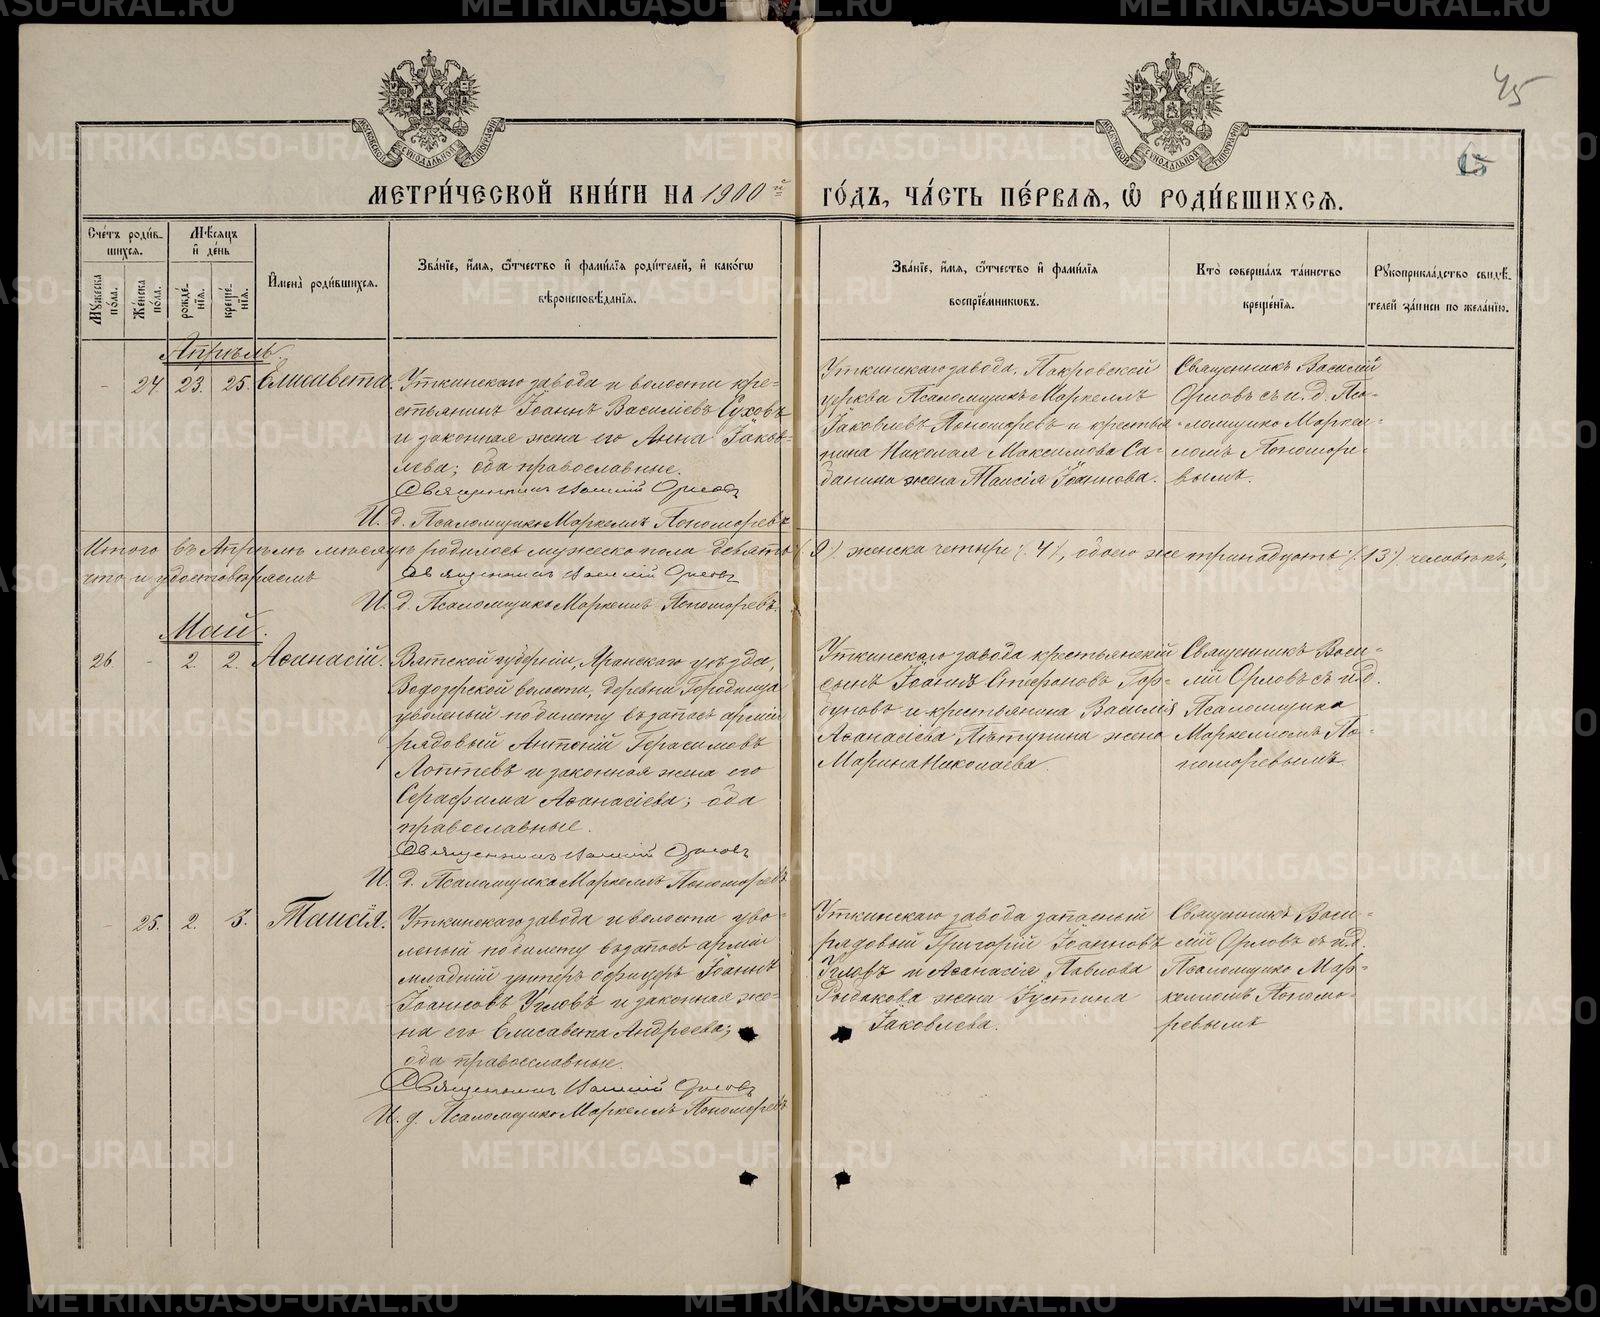 45
МЕТРИ́ЧЕСКОЙ КНИ́ГИ НА 1900й ГО́ДЪ, ЧА́СТЬ ПЕ́РВАЯ, Ѡ РОДИ́ВШИХСЯ.
Сче́тъ роди́в-
шихся.
Мѣ́сяцъ
и҆ де́нь
И҆мена̀ роди́вшихся.
Зва́нїе, и҆́мя, ѻ҆́тчество и҆ фами́лїя роди́телей, и҆ како́гѡ
вѣроисповѣ́данїя.
Зва́нїе, и҆́мя, ѻ҆́тчество и҆ фами́лїя
воспрїе́мникѡвъ.
Кто̀ соверша́лъ та́инство
креще́нїя.
Рꙋкоприкла́дство свидѣ́-
телей за́писи по жела́нїю.
Мꙋ́жеска
по́ла.
Же́нска
по́ла.
рожде́-
нїя.
креще́-
нїя.
Апрѣль.
- 24. 23. 25. Елисавета.
Уткинскаго завода и волости кре-
стьянинъ Іоаннъ Василіевъ Суховъ
и законная жена его Анна Іаков-
лева; оба православные.
Священникъ Василій Орловъ
И. д. Псаломщика Маркеллъ Пономоревъ
Уткинскаго завода, Покровской
церкви Псаломщикъ Маркеллъ
Іаковлевъ Пономоревъ и крестья-
нина Николая Максимова Са-
данина жена Таисія Іоаннова.
Священникъ Василій
Орловъ съ и. д. Пса-
ломщика Маркел-
ломъ Пономоре-
вымъ.
Итого въ Апрѣлѣ мѣсяцѣ родилось мужеска пола девять (9) женска четыре (4), обоего же тринадцать (13) человѣкъ,
что и удостовѣряемъ
Священникъ Василій Орловъ
И. д. Псаломщика Маркеллъ Пономоревъ.
Май.
26 - 2. 2. Аѳанасій.
Вятской губерніи, Яранскаго уѣзда,
Водозерской волости, деревни Городища
уволеный по билету въ запасъ арміи
рядовый Антоній Герасимовъ
Лоптевъ и законная жена его
Серафима Аѳанасіева; оба
православные.
Священникъ Василій Орловъ
И. д. Псаломщика Маркеллъ Пономоревъ
Уткинскаго завода крестьянскій
сынъ Іоаннъ Стефановъ Гор-
буновъ и крестьянина Василія
Аѳанасіева Пѣтунина жена
Марина Николаева.
Священникъ Васи-
лій Орловъ съ и. д.
Псаломщика
Маркелломъ По-
номоревымъ.
- 25. 2. 3. Таисія.
Уткинскаго завода и волости уво-
леный по билету въ запасъ арміи
младшій унтеръ офицеръ Іоаннъ
Іоанновъ Угловъ и законная же-
на его Елисавета Андреева;
оба православные.
Священникъ Василій Орловъ
И. д. Псаломщика Маркеллъ Пономоревъ
Уткинскаго завода запасный
рядовый Григорій Іоанновъ
Угловъ и Аѳанасія Павлова
Рыбакова жена Іустина
Іаковлева.
Священникъ Васи-
лій Орловъ съ и. д.
Псаломщика Мар-
келломъ Пономо-
ревымъ
METRIKI.GASO-URAL.RU